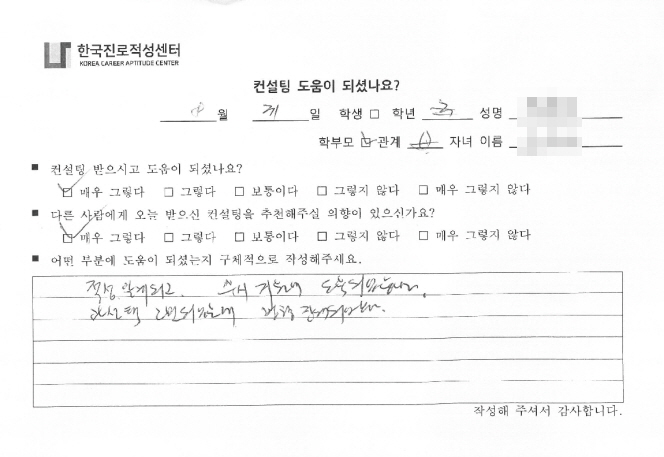 한국진로적성센터
KOREA CAREER APTITUDE CENTER
컨설팅 도움이 되셨나요?
월 일 학생 □ 학년 성명
학부모 □ 관계 자녀 이름
■ 컨설팅 받으시고 도움이 되셨나요?
□ 매우 그렇다 □ 그렇다 □ 보통이다 □ 그렇지 않다 □ 매우 그렇지 않다
■ 다른 사람에게 오늘 받으신 컨설팅을 추천해주실 의향이 있으신가요?
□ 매우 그렇다 □ 그렇다 □ 보통이다 □ 그렇지 않다 □ 매우 그렇지 않다
■ 어떤 부분에 도움이 되셨는지 구체적으로 작성해주세요.
적성 알게되고 도움되었습니다.
고민되었는데
작성해 주셔서 감사합니다.